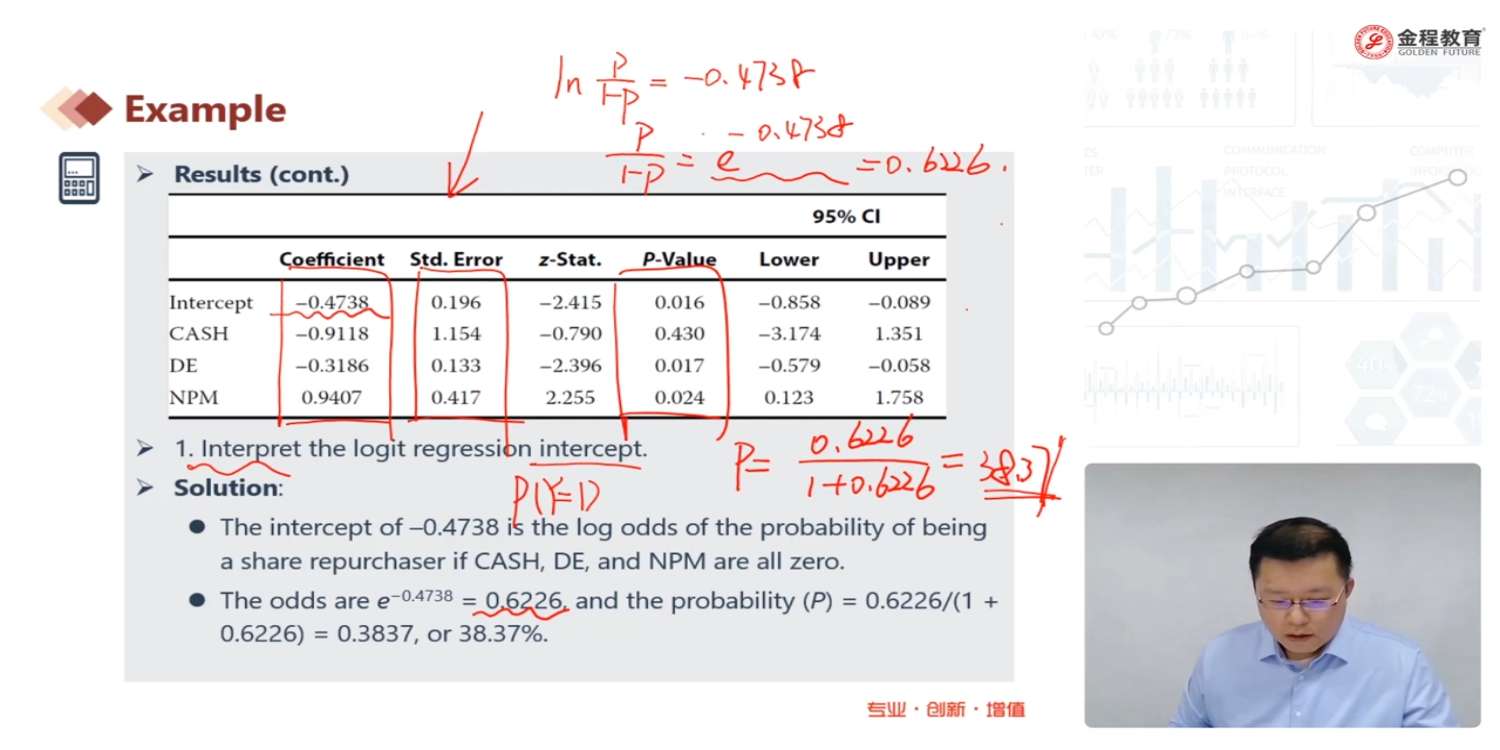 金程教育
GOLDEN FUTURE
ln P/1-P = -0.4738
P/1-P = e^-0.4738 = 0.6226.
Example
Results (cont.)
95% CI
Coefficient Std. Error z-Stat. P-Value Lower Upper
Intercept −0.4738 0.196 −2.415 0.016 −0.858 −0.089
CASH −0.9118 1.154 −0.790 0.430 −3.174 1.351
DE −0.3186 0.133 −2.396 0.017 −0.579 −0.058
NPM 0.9407 0.417 2.255 0.024 0.123 1.758
1. Interpret the logit regression intercept.
P= 0.6226/1+0.6226 = 38.37%
P(Y=1)
Solution:
The intercept of −0.4738 is the log odds of the probability of being
a share repurchaser if CASH, DE, and NPM are all zero.
The odds are e^−0.4738 = 0.6226, and the probability (P) = 0.6226/(1 +
0.6226) = 0.3837, or 38.37%.
专业·创新·增值
COMMUNICATION
PROTOCOL
INTERFACE